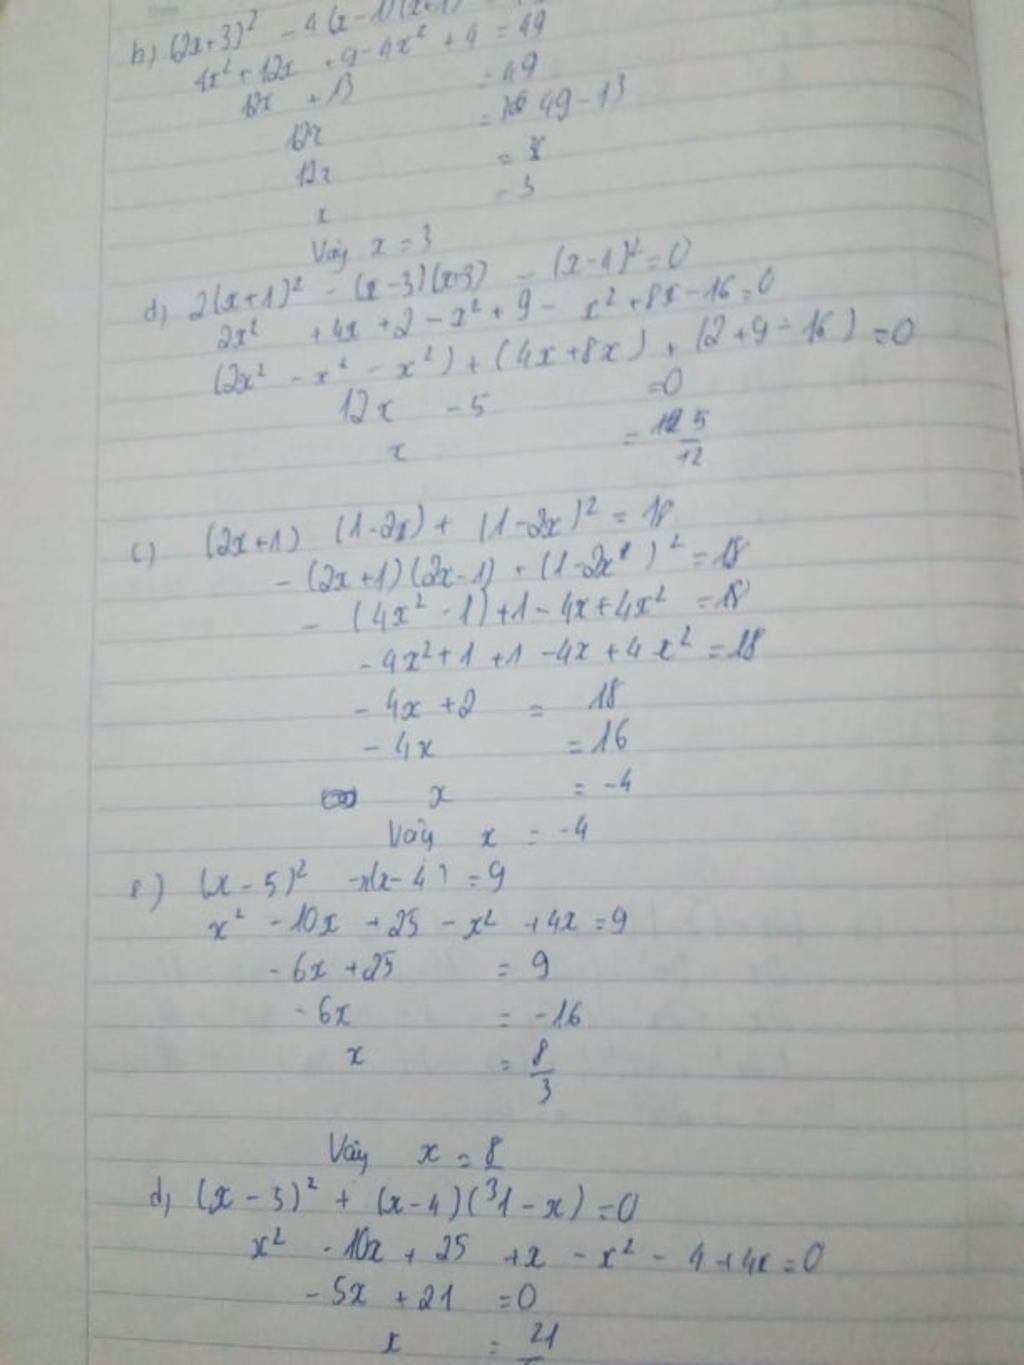 b) (2x+3)² - 4(x-1)(x+1)
4x² + 12x + 9 - 4x² + 4 = 49
12x + 13 = 49
12x = 49 - 13
12x
x = 3
Vậy x = 3
d) 2(x+1)² - (x-3)(x+3) - (x-4)² = 0
2x² + 4x + 2 - x² + 9 - x² + 8x - 16 = 0
(2x² - x² - x²) + (4x + 8x) + (2 + 9 - 16) = 0
12x - 5 = 0
x = 5/12
c) (2x+1) (1-2x) + (1-2x)² = 18
- (2x+1)(2x-1) + (1-2x)² = 18
- (4x² - 1) + 1 - 4x + 4x² = 18
- 4x² + 1 + 1 - 4x + 4x² = 18
- 4x + 2 = 18
- 4x = 16
x = -4
Vậy x = -4
e) (x-5)² - x(x-4) = 9
x² - 10x + 25 - x² + 4x = 9
- 6x + 25 = 9
- 6x = -16
x = 8/3
Vậy x = 8/3
d) (x-5)² + (x-4)(1-x) = 0
x² - 10x + 25 + x - x² - 4 + 4x = 0
- 5x + 21 = 0
x = 21